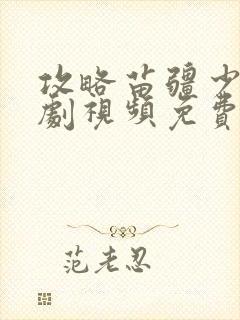 攻略苗疆少
劇視頻免費
范老忍